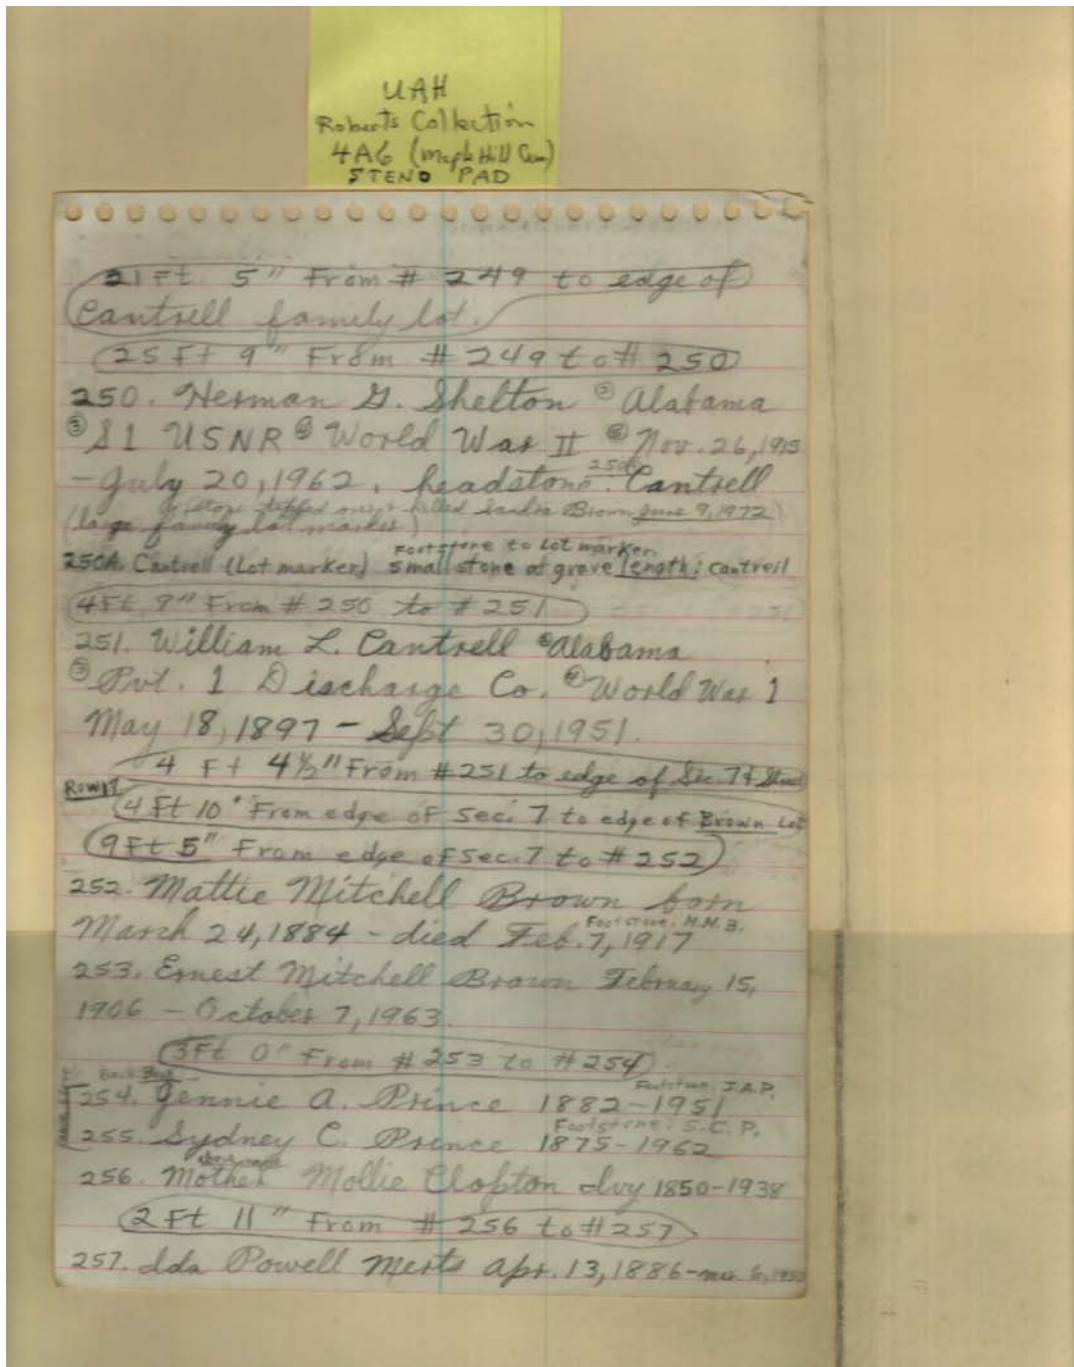 UAH
Roberts Collection
4A6 (Maple Hill Cem)
STENO PAD
21 Ft 5" From # 249 to edge of
Cantrell family lot.
25 Ft 9" From # 249 to # 250
250. Herman G. Shelton ② Alabama
③ S1 USNR ④ World War II ⑤ Nov. 26, 1915
- July 20, 1962. headstone: Cantrell
stone tipped over & killed Sandra Brown June 9, 1972)
(large family lot marker)
Footstone to Lot marker
250A. Cantrell (Lot marker) small stone at grave length: Cantrell
4 Ft 9" From # 250 to # 251
251. William L. Cantrell ② Alabama
③ Pvt. 1 Discharge Co. ④ World War 1
May 18, 1897 - Sept 30, 1951.
4 Ft 4½" From # 251 to edge of Sec. 7 &
Row 17
4 Ft 10" From edge of Sec. 7 to edge of Brown Lot
9 Ft 5" From edge of Sec. 7 to # 252
252. Mattie Mitchell Brown born
Footstone: M.M.B.
March 24, 1884 - died Feb. 7, 1917
253. Ernest Mitchell Brown February 15,
1906 - October 7, 1963.
3 Ft 0" From # 253 to # 254
Footstone: J.A.P.
254. Jennie A. Prince 1882-1951
Footstone: S.C.P.
255. Sydney C. Prince 1875-1962
256. Mother Mollie Clopton Ivy 1850-1938
2 Ft 11" From # 256 to # 257
257. Ida Powell Merts Apr. 13, 1886-